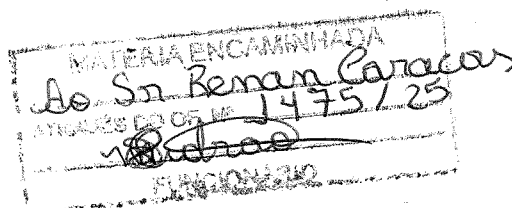 MATÉRIA ENCAMINHADA
Ao Sr Renan Caracas
ATRAVÉS DO OF. Nº 1475/25
FUNCIONÁRIO